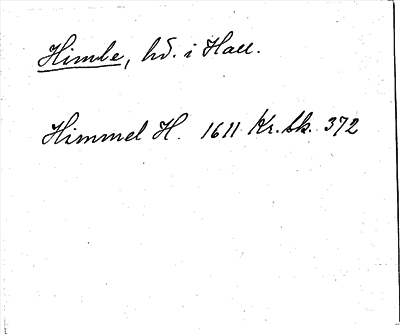 Himle, hd. i Hall.
Himmel H. 1611 Kr. bk. 372